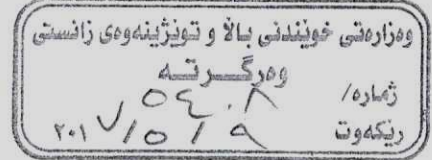 وەزارەتی خوێندنی باڵا و توێژینەوەی زانستی
وەرگـــرتـــە
ژمارە/ ٥٤٠٨
ریکەوت ٩ / ٥ / ٢٠١٧